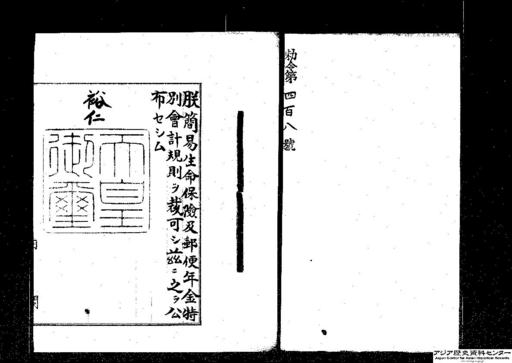 勅令第四百八號
朕簡易生命保險及郵便年金特
別會計規則ヲ裁可シ茲ニ之ヲ公
布セシム
裕仁
天皇
御璽
アジア歴史資料センター
Japan Center for Asian Historical Records